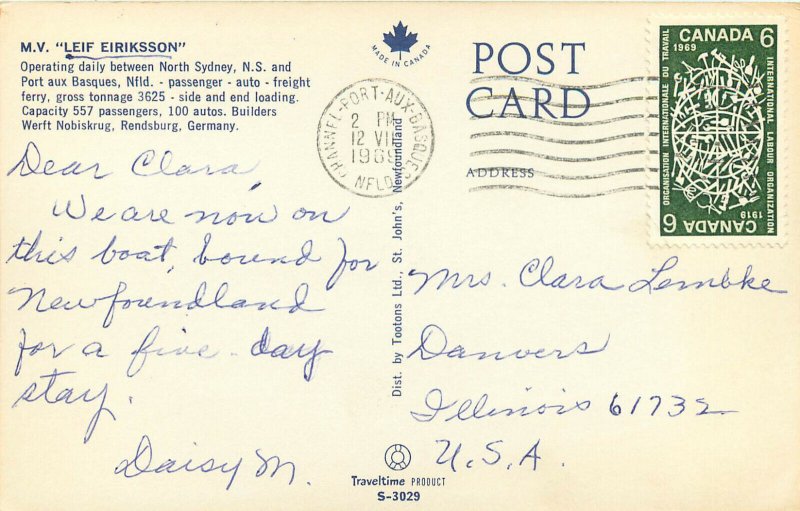 M.V. "LEIF EIRIKSSON"
Operating daily between North Sydney, N.S. and
Port aux Basques, Nfld. - passenger - auto - freight
ferry, gross tonnage 3625 - side and end loading.
Capacity 557 passengers, 100 autos. Builders
Werft Nobiskrug, Rendsburg, Germany.
Dear Clara,
We are now on
this boat, bound for
Newfoundland
for a five-day
stay.
Daisy M.
MADE IN CANADA
CHANNEL-PORT-AUX-BASQUES
2 PM
12 VII
1969
NFLD
Dist. by Tootons Ltd., St. John's, Newfoundland
Traveltime PRODUCT
S-3029
POST
CARD
ADDRESS
Mrs. Clara Lembke
Danvers
Illinois 61732
U.S.A.
CANADA 6
1969
ORGANISATION INTERNATIONALE DU TRAVAIL
INTERNATIONAL LABOUR ORGANIZATION
1919
CANADA 6